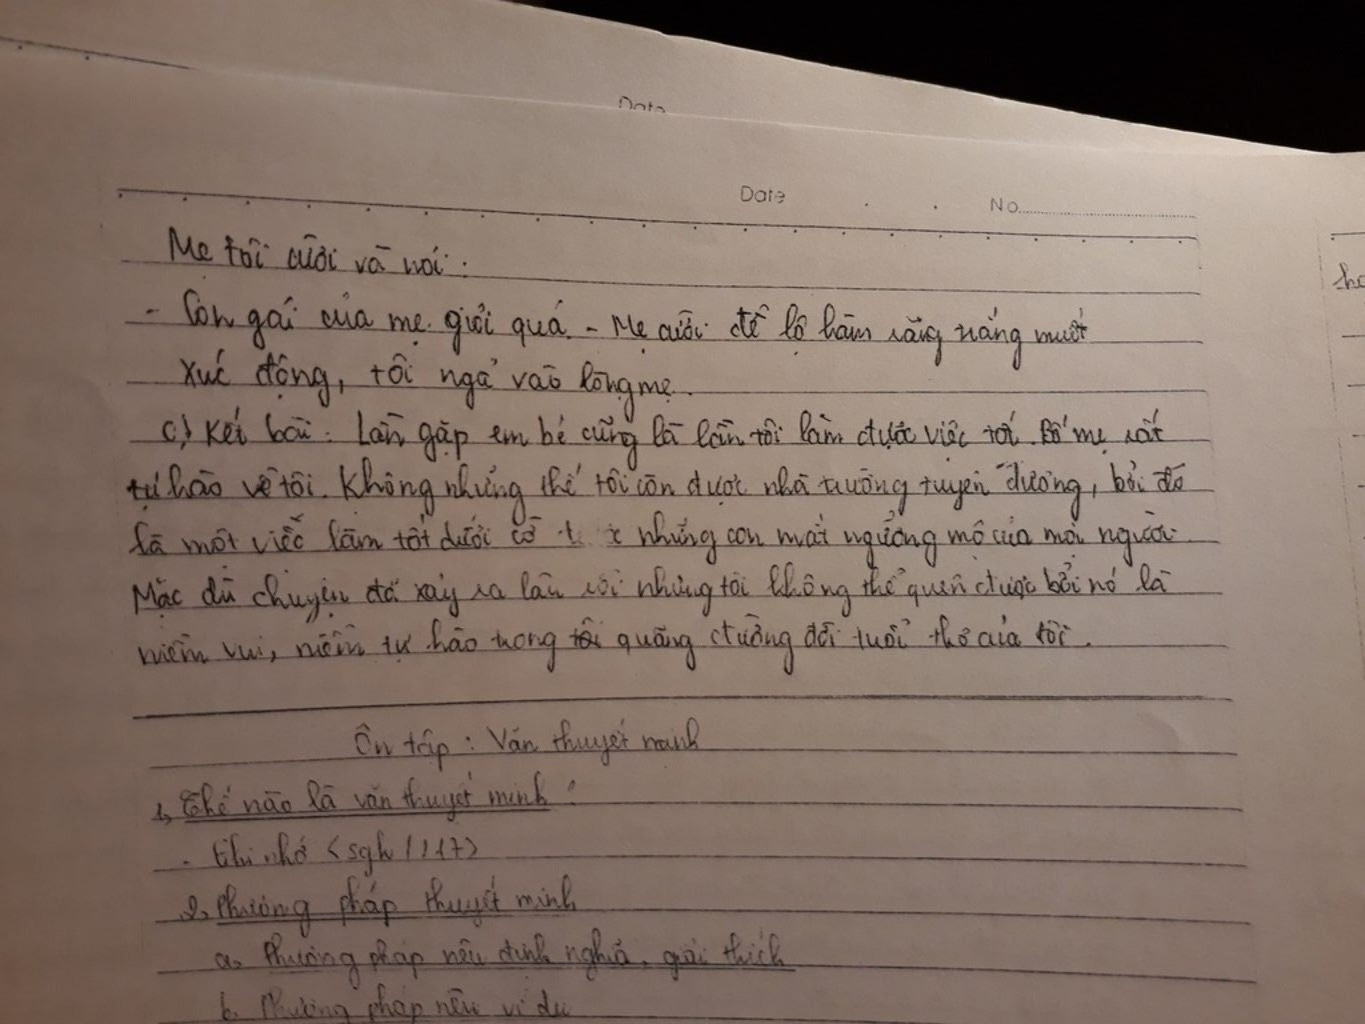 Date
Date No
Mẹ tôi cười và nói:
- Con gái của mẹ giỏi quá - Mẹ cười để lộ hàm răng trắng muốt
Xúc động, tôi ngả vào lòng mẹ.
c) Kết bài: Lần gặp em bé cũng là lần tôi làm được việc tốt. Bố mẹ rất
tự hào về tôi. Không những thế tôi còn được nhà trường tuyên dương, bởi đó
là một việc làm tốt dưới cờ những con mắt ngưỡng mộ của mọi người.
Mặc dù chuyện đã xảy ra lâu rồi nhưng tôi không thể quên được bởi nó là
niềm vui, niềm tự hào trong quãng đường đời tuổi thơ của tôi.
Ôn tập: Văn thuyết minh
1, Thế nào là văn thuyết minh:
- Ghi nhớ <sgk / 117>
2, Phương pháp thuyết minh
a, Phương pháp nêu định nghĩa, giải thích
b, Phương pháp nêu ví dụ